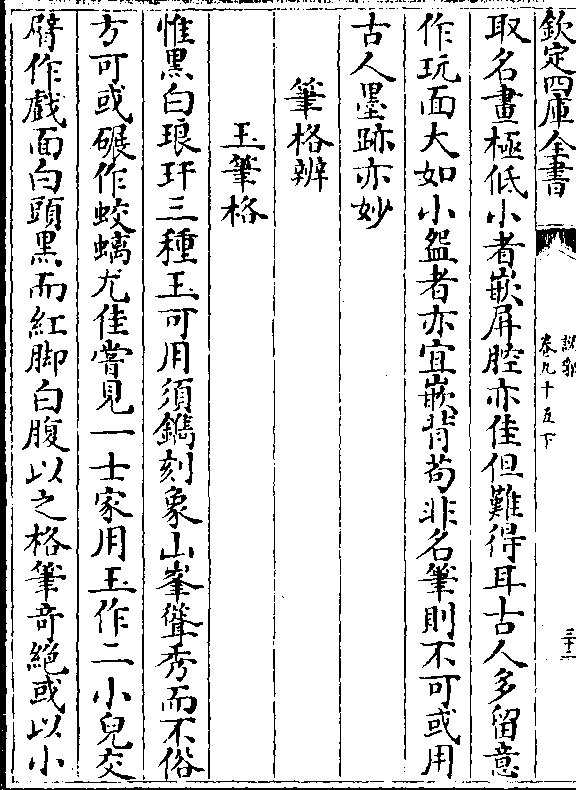 欽定四庫全書
說郛
卷九十五下
三十二
取名畫極低小者嵌屏腔亦佳但難得耳古人多留意
作玩面大如小盌者亦宜嵌背茍非名筆則不可或用
古人墨跡亦妙
筆格辨
玉筆格
惟黑白琅玕三種玉可用須鐫刻象山峯聳秀而不俗
方可或碾作蛟螭尤佳嘗見一士家用玉作二小兒交
臂作戲面白頭黑而紅脚白腹以之格筆奇絶或以小